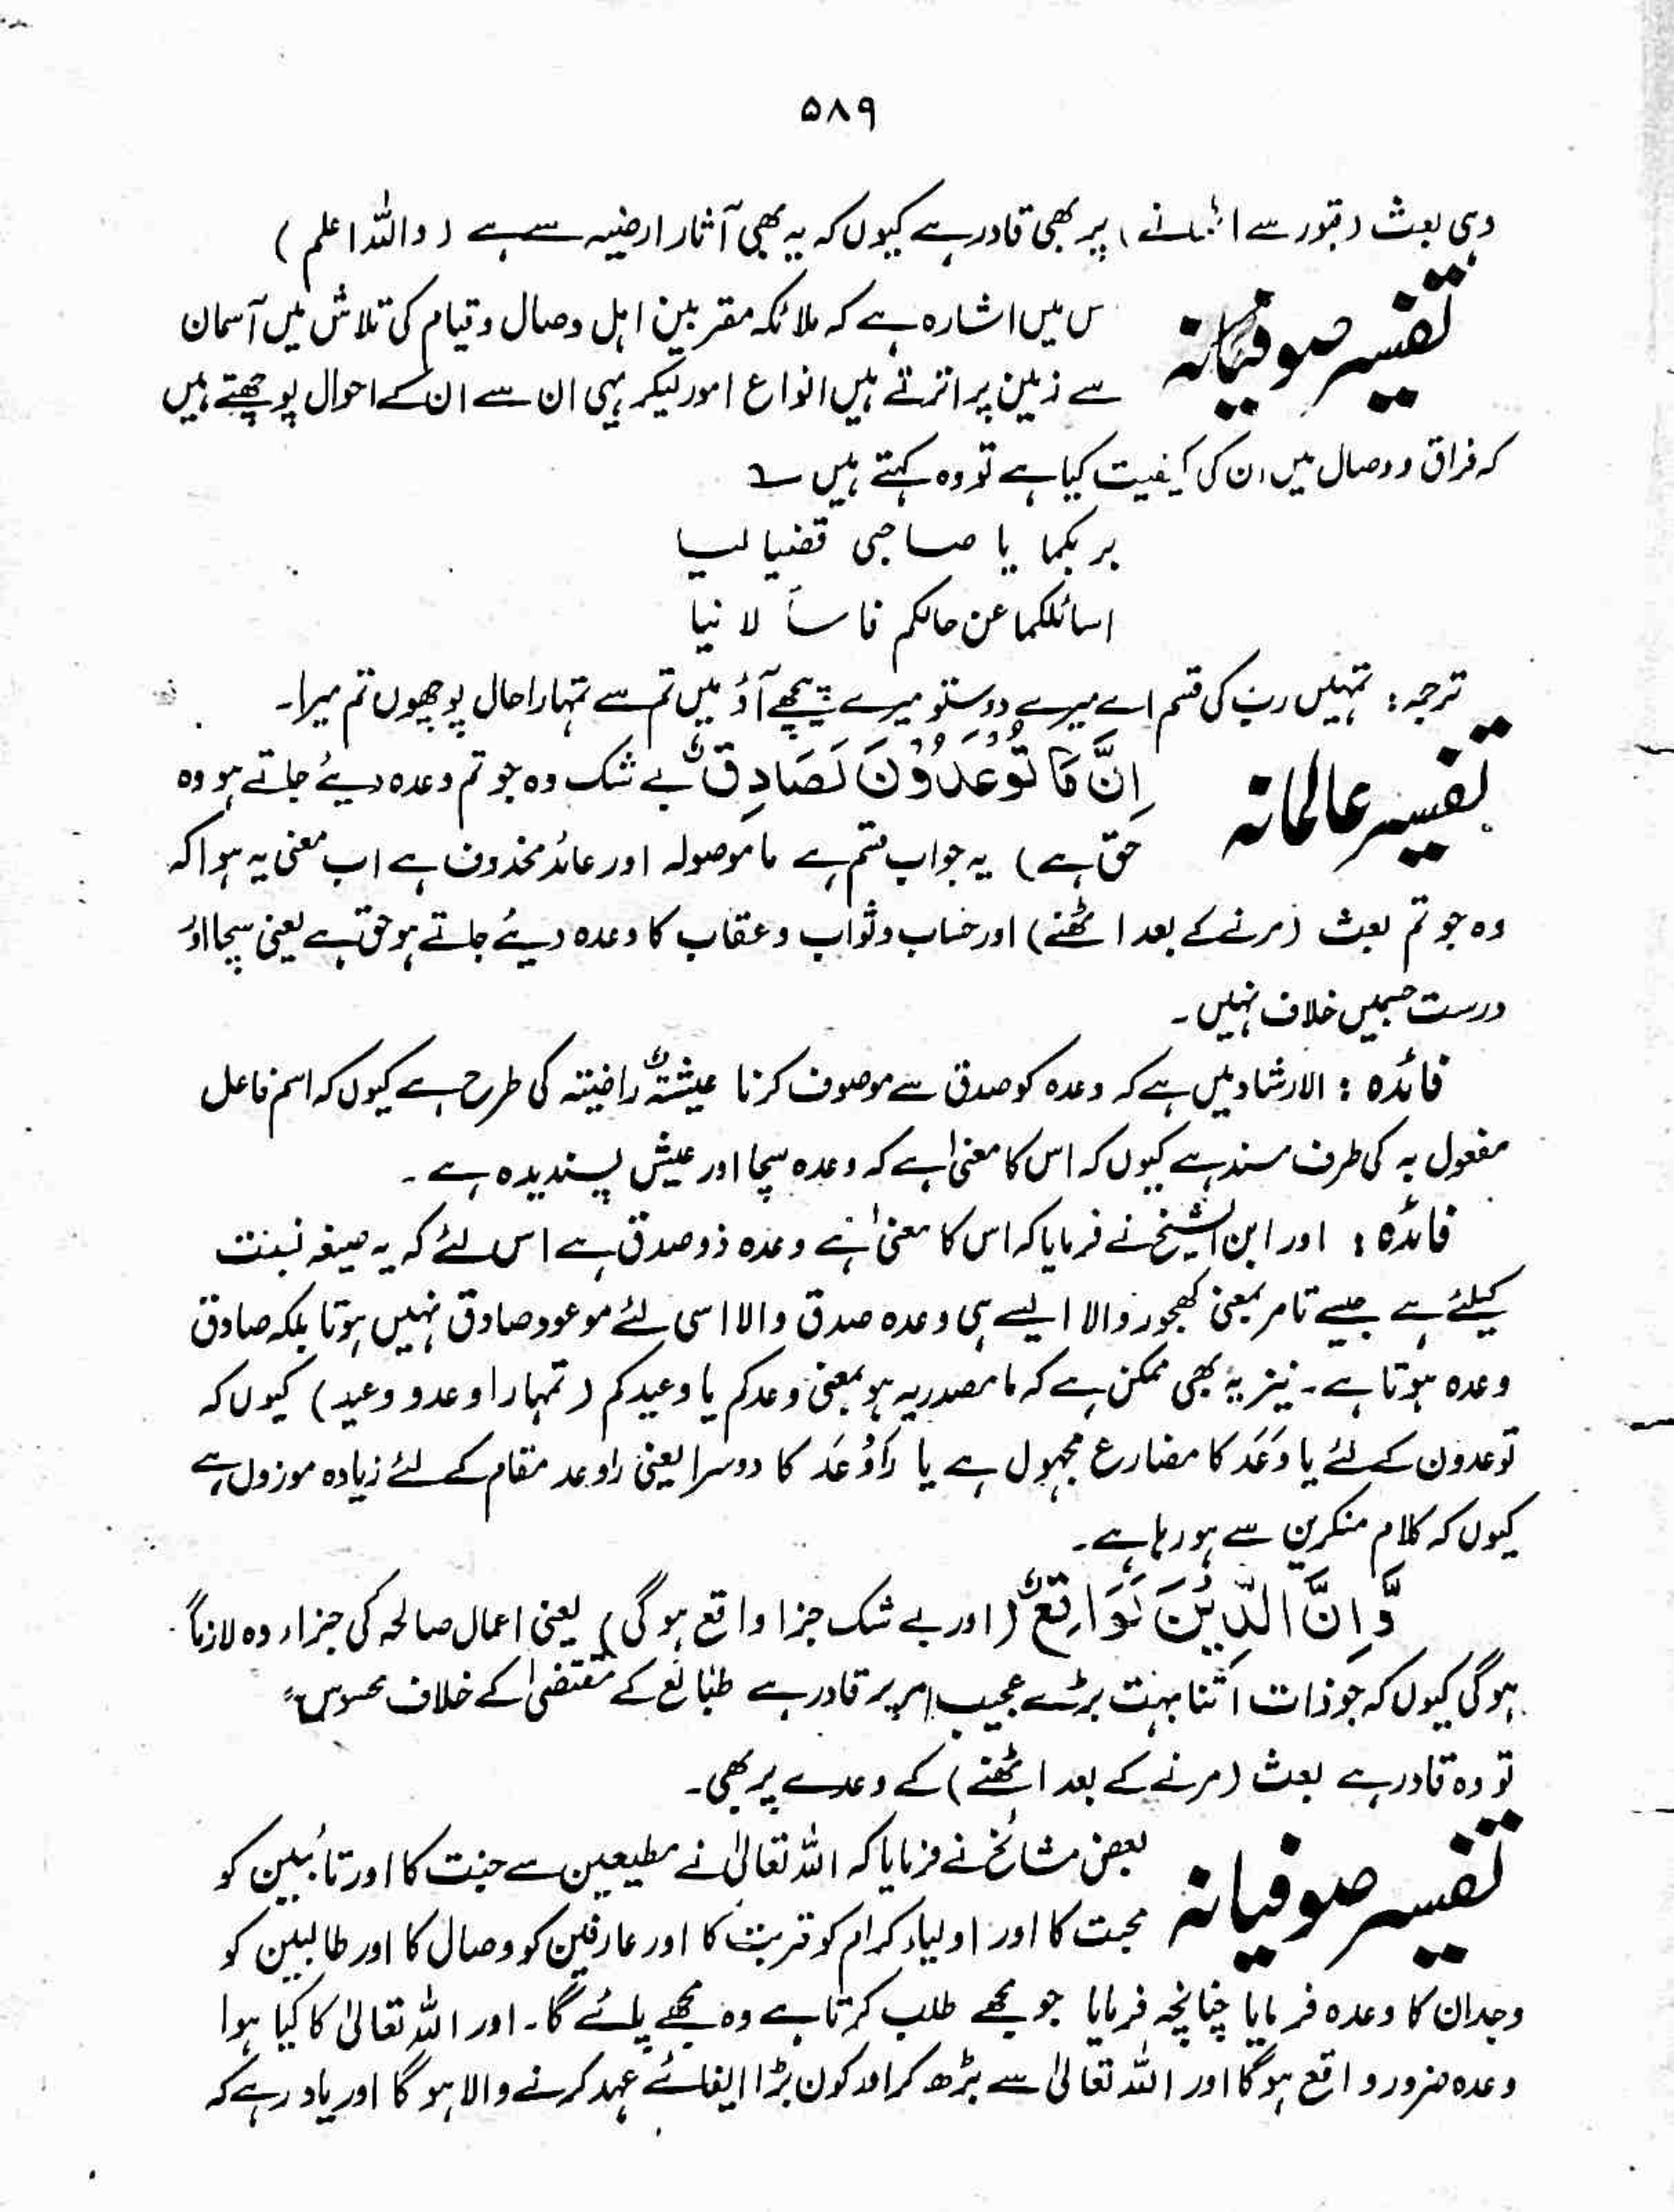 ۵۸۹
وہی بعث (قبور سے اٹھانے) پر بھی قادر ہے کیوں کہ یہ بھی آثار ارضیہ سے ہے (واللہ اعلم)
تفسیر صوفیانہ
س میں اشارہ ہے کہ ملائکہ مقربین اہل وصال و قیام کی تلاش میں آسمان
سے زمین پر اترتے ہیں انواع امور لیکر یہی ان سے ان کے احوال پوچھتے ہیں
کہ فراق و وصال میں ان کی کیفیت کیا ہے تو وہ کہتے ہیں ؎
بربکما یا صاحبی قفنیا لیا
اسائلکما عن حالکم فاسأ لا نیا
ترجمہ : تمہیں رب کی قسم اے میرے دوستو میرے پیچھے آؤ میں تم سے تمہارا حال پوچھوں تم میرا۔
تفسیر عالمانہ
اِنَّ مَا تُوْعَدُوْنَ لَصَادِقٌ بے شک وہ جو تم وعدہ دیئے جاتے ہو وہ
حق ہے) یہ جواب قسم ہے ما موصولہ اور عائد محذوف ہے اب معنی یہ ہوا کہ
وہ جو تم بعث (مرنے کے بعد اٹھنے) اور حساب و ثواب و عقاب کا وعدہ دیئے جاتے ہو حق ہے یعنی سچا اور
درست جسمیں خلاف نہیں۔
فائدہ : الارشاد میں ہے کہ وعدہ کو صدق سے موصوف کرنا عیشۃٌ راضیتہ کی طرح ہے کیوں کہ اسم فاعل
مفعول بہ کی طرف مسند ہے کیوں کہ اس کا معنیٰ ہے کہ وعدہ سچا اور عیش پسندیدہ ہے۔
فائدہ : اور ابن الشیخ نے فرمایا کہ اس کا معنیٰ ہے وعدہ ذو صدق ہے اس لئے کہ یہ صیغہ نسبت
کیلئے ہے جیسے تامر بمعنیٰ کھجور والا ایسے ہی وعدہ صدق والا اسی لئے موعود صادق نہیں ہوتا بلکہ صادق
وعدہ ہوتا ہے۔ نیز یہ بھی ممکن ہے کہ ما مصدریہ ہو بمعنی وعدکم یا وعیدکم (تمہارا وعدو وعید) کیوں کہ
توعدون کے لئے یا وَعَد کا مضارع مجہول ہے یا راوُعَد کا دوسرا یعنی راوعد مقام کے لئے زیادہ موزوں ہے
کیوں کہ کلام منکرین سے ہو رہا ہے۔
وَّاِنَّ الدِّیْنَ لَوَاقِعٌ (اور بے شک جزا واقع ہوگی) یعنی اعمال صالحہ کی جزاء وہ لازماً
ہوگی کیوں کہ جو ذات اتنا بہت بڑے عجیب امر پر قادر ہے طبائع کے مقتضیٰ کے خلاف محسوس
تو وہ قادر ہے بعث (مرنے کے بعد اٹھنے) کے وعدے پر بھی۔
تفسیر صوفیانہ
بعض مشائخ نے فرمایا کہ اللہ تعالیٰ نے مطیعین سے جنت کا اور تائبین کو
محبت کا اور اولیاء کرام کو قربت کا اور عارفین کو وصال کا اور طالبین کو
وجدان کا وعدہ فرمایا چنانچہ فرمایا جو مجھے طلب کرتا ہے وہ مجھے پائے گا۔ اور اللہ تعالیٰ کا کیا ہوا
وعدہ ضرور واقع ہوگا اور اللہ تعالیٰ سے بڑھ کر اور کون بڑا ایفائے عہد کرنے والا ہوگا اور یاد رہے کہ